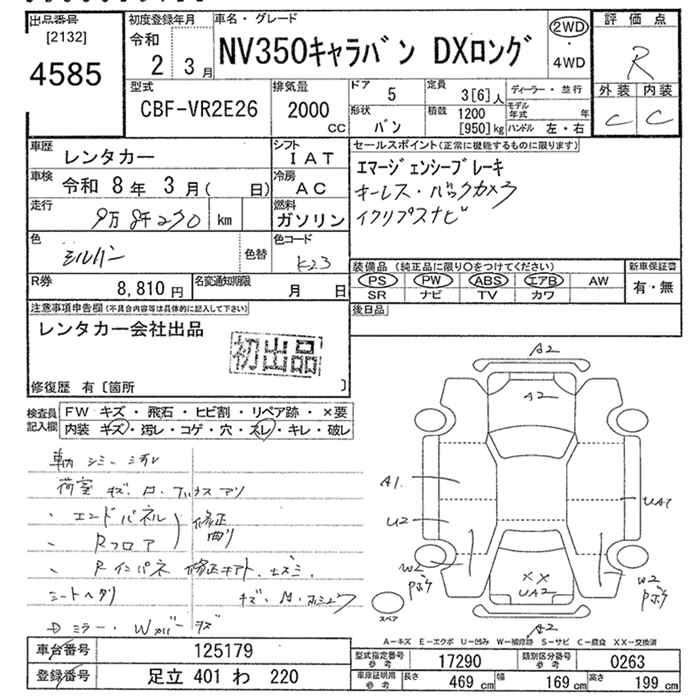 出品番号
[2132]
4585
初度登録年月
令和
2 3月
車名・グレード
NV350キャラバン DXロング
2WD
・
4WD
評価点
R
外装 内装
C C
型式
CBF-VR2E26
排気量
2000
CC
ドア
5
定員
3[6]人
形状
バン
積載
1200
[950]kg
ディーラー・並行
モデル年式 年
ハンドル 左・右
車歴
レンタカー
シフト
IAT
車検
令和 8年 3月( 日)
冷房
AC
走行
km
燃料
ガソリン
色
シルバー
色替
色コード
K23
R券
8,810円
名変通知期限
月 日
セールスポイント(正常に機能するものに限ります)
エマージェンシーブレーキ
キーレス・バックカメラ
イクリプスナビ
装備品(純正品に限り○をつけてください)
新車保証書
PS PW ABS エアB AW
SR ナビ TV カワ
有・無
後日品
注意事項申告欄(不具合内容等は具体的に記入して下さい)
レンタカー会社出品
初出品
修復歴 有〔箇所 〕
検査員記入欄
FW キズ・飛石・ヒビ割・リペア跡・×要
内装 キズ・汚レ・コゲ・穴・スレ・キレ・破レ
荷室 キズ
・エンドパネル
・Rフロア
修正
曲り
・Rインパネ 修正
シートヘタリ
Dミラー・Wカバーキズ
A2
A2
A1
U2
UA1
W2
W2
XX
UA2
A2
スペア
A-キズ E-エクボ U-凹み W-補修跡 S-サビ C-腐食 XX-交換済
車台番号
125179
登録番号
足立 401 わ 220
型式指定番号
参考
17290
類別区分番号
参考
0263
車庫証明用
参考
長さ
469 cm
幅
169 cm
高さ
199 cm